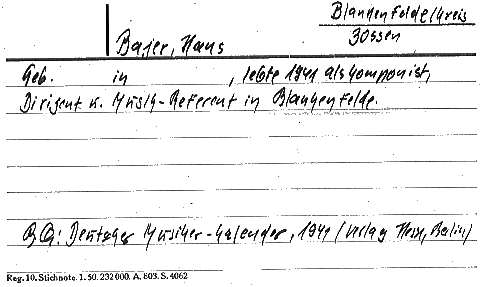 Blankenfelde/Kreis
Zossen
Bajer, Hans
Geb. in , lebte 1941 als Komponist,
Dirigent u. Musik-Referent in Blankenfelde.
BQ: Deutscher Musiker-Kalender, 1941 (Verlag Hesse, Berlin)
Reg. 10. Stichnote. 1. 50. 232000. A. 803. S. 4062